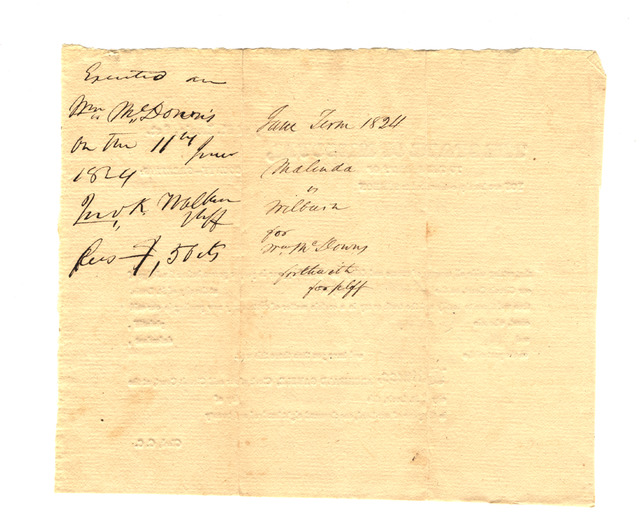 Executed on
Wm McDonnis
on the 11th June
1824
Jno. K. Walker
shff
fees ,50cts
June Term 1824
Malinda
vs
Wilburn
for
Wm McDowns
forthwith
for plff